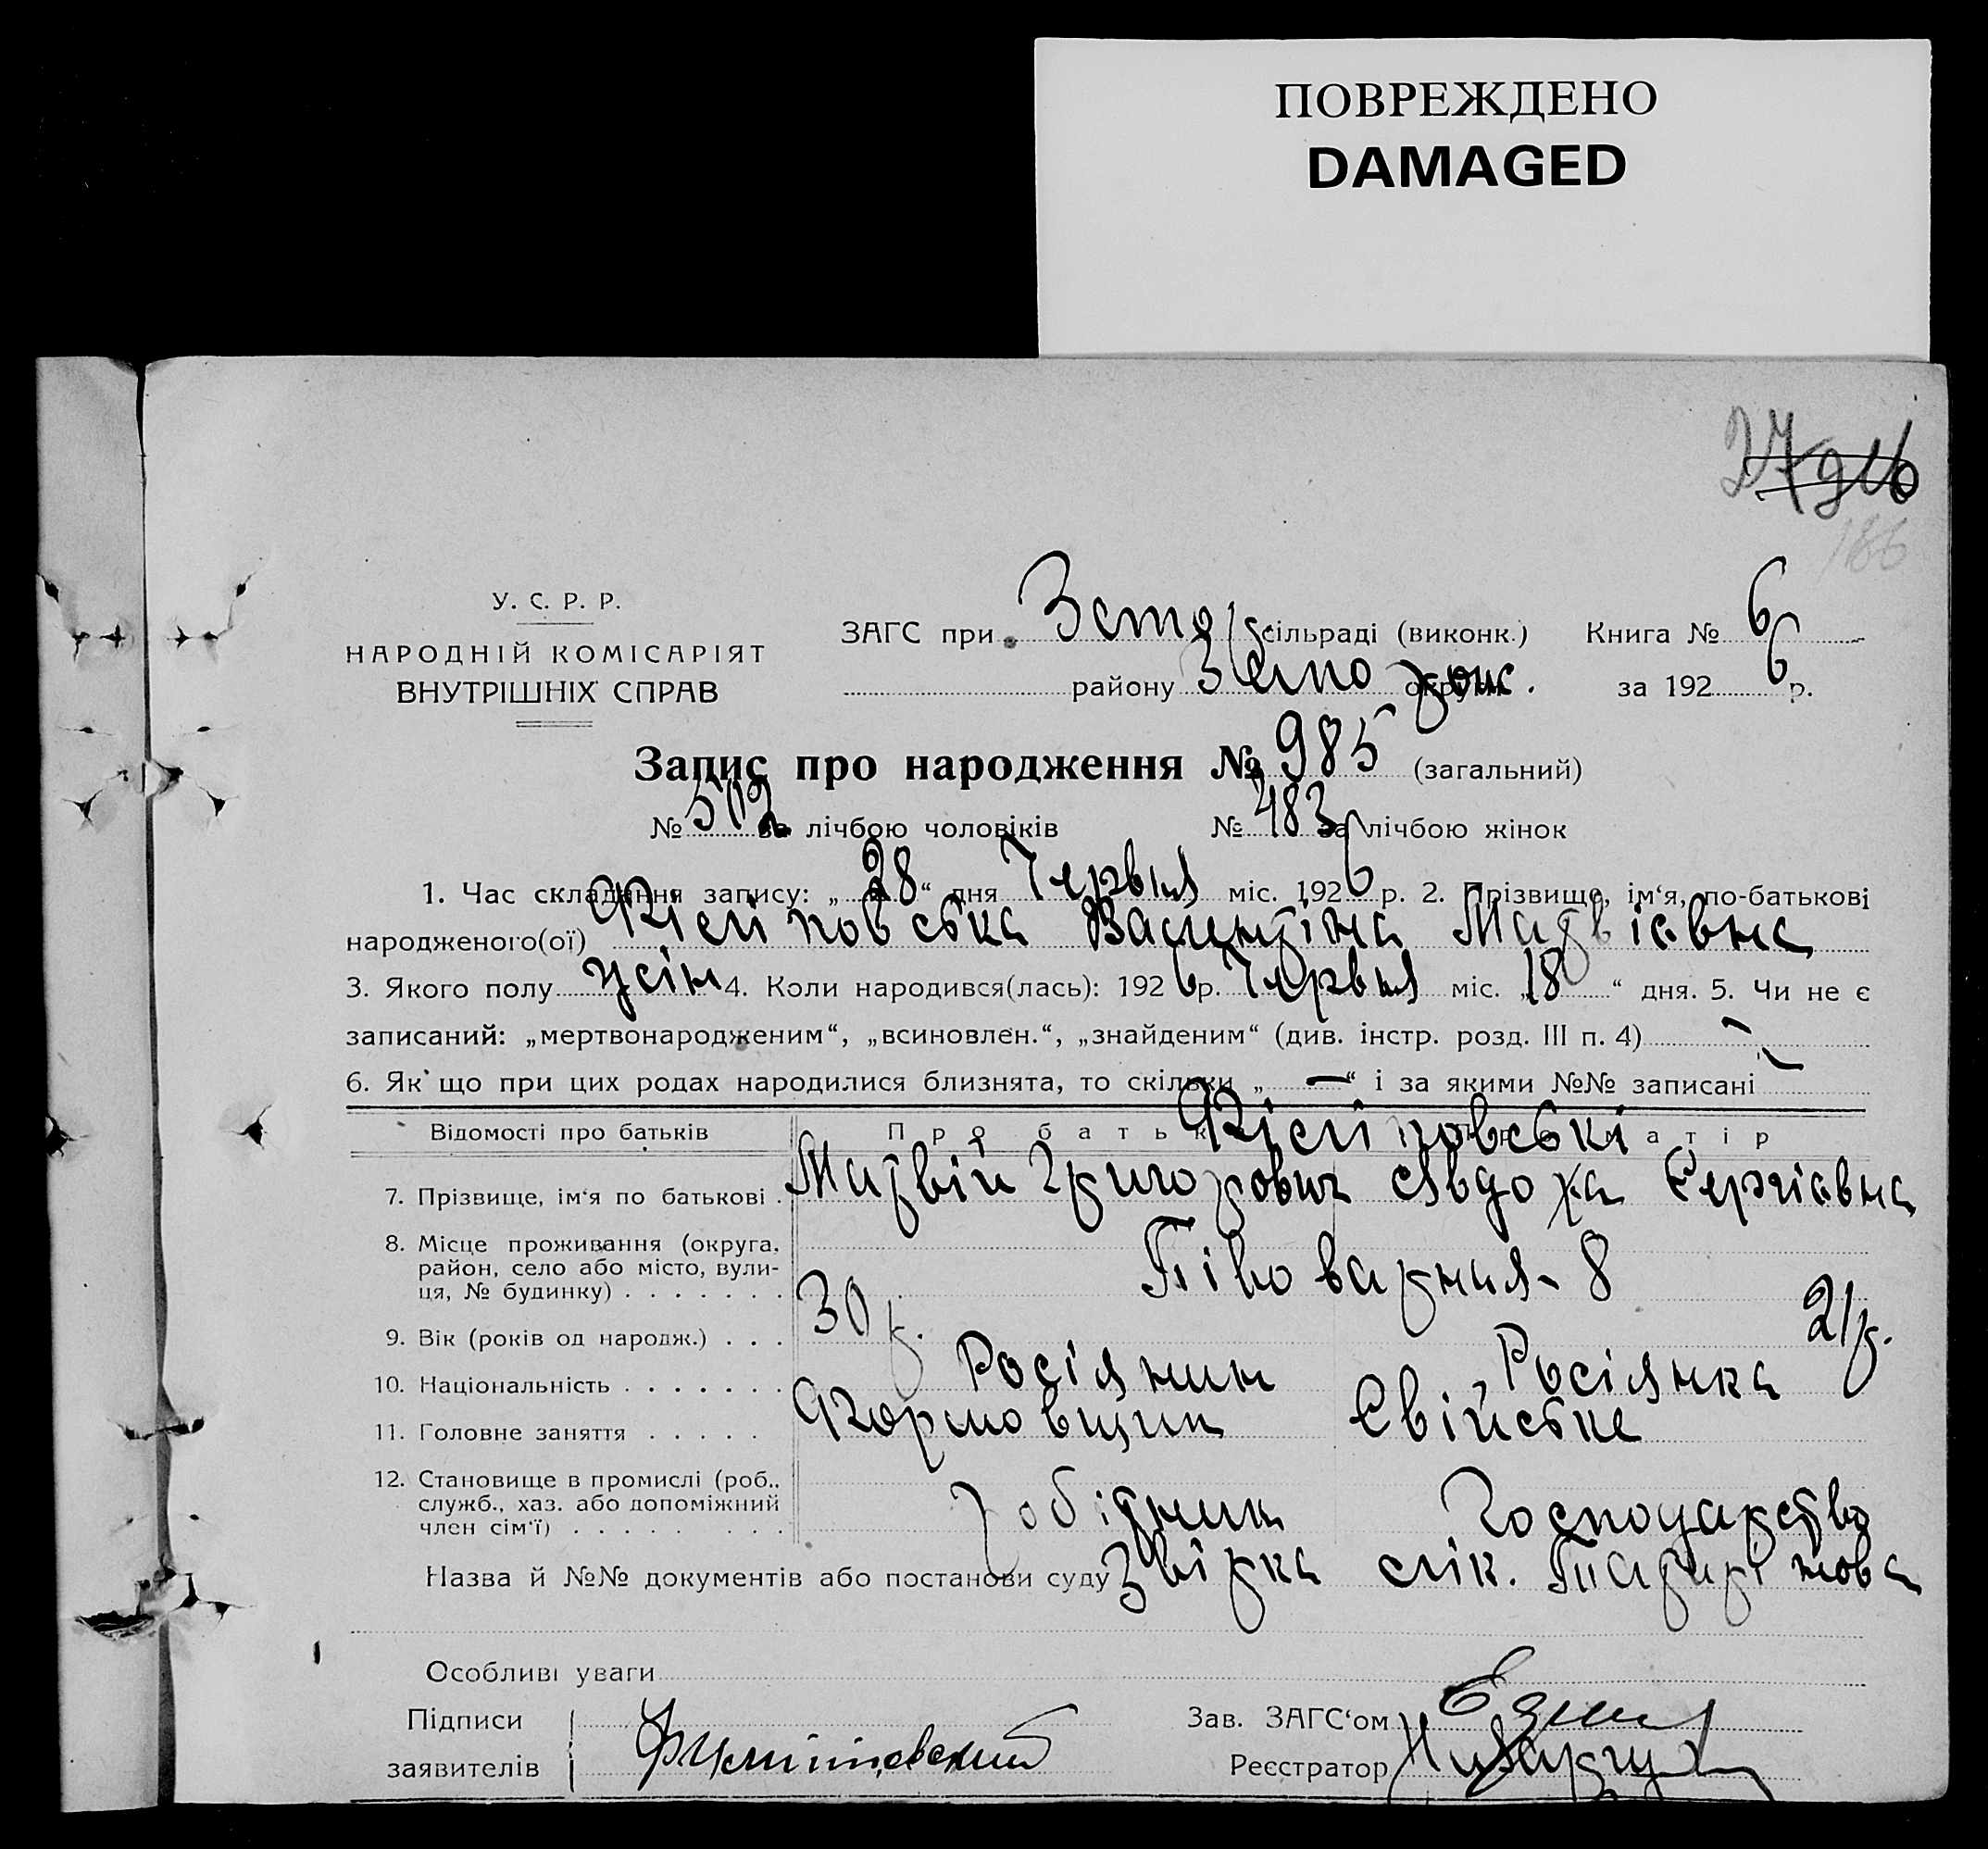 ПОВРЕЖДЕНО
DAMAGED
186
У. С. Р. Р.
НАРОДНІЙ КОМІСАРІЯТ
ВНУТРІШНІХ СПРАВ
ЗАГС при сільраді (виконк.) Книга № 6
району округи за 1926 р.
Запис про народження № 985 (загальний)
№ 502 за лічбою чоловіків № 483 за лічбою жінок
1. Час складання запису: „28“ дня Червня міс. 1926 р. 2. Прізвище, ім‘я, по-батькові
народженого(ої) Філіповська Валентіна Матвіівна
3. Якого полу жін 4. Коли народився(лась): 1926 р. Червня міс. „18“ дня. 5. Чи не є
записаний: „мертвонародженим“, „всиновлен.“, „знайденим“ (див. інстр. розд. III п. 4) —
6. Як‘що при цих родах народилися близнята, то скільки „—“ і за якими №№ записані —
Відомості про батьків Про батька Про матір
Філіповські
7. Прізвище, ім‘я по батькові . Матвій Григорович Явдоха Сергіівна
8. Місце проживання (округа,
район, село або місто, вули-
ця, № будинку) . . . . . . . Піво варная - 8
9. Вік (років од народж.) . . . 30 р. 21 р.
10. Національність . . . . . . . Росіянин Росіянка
11. Головне заняття . . . . . Формовщик Свійське
12. Становище в промислі (роб.,
служб., хаз. або допоміжний
член сім‘ї) . . . . . . . . робітник Господарство
Назва й №№ документів або постанови суду Звірка лік.
Особливі уваги
Підписи
заявителів Филипповский
Зав. ЗАГС‘ом
Реєстратор